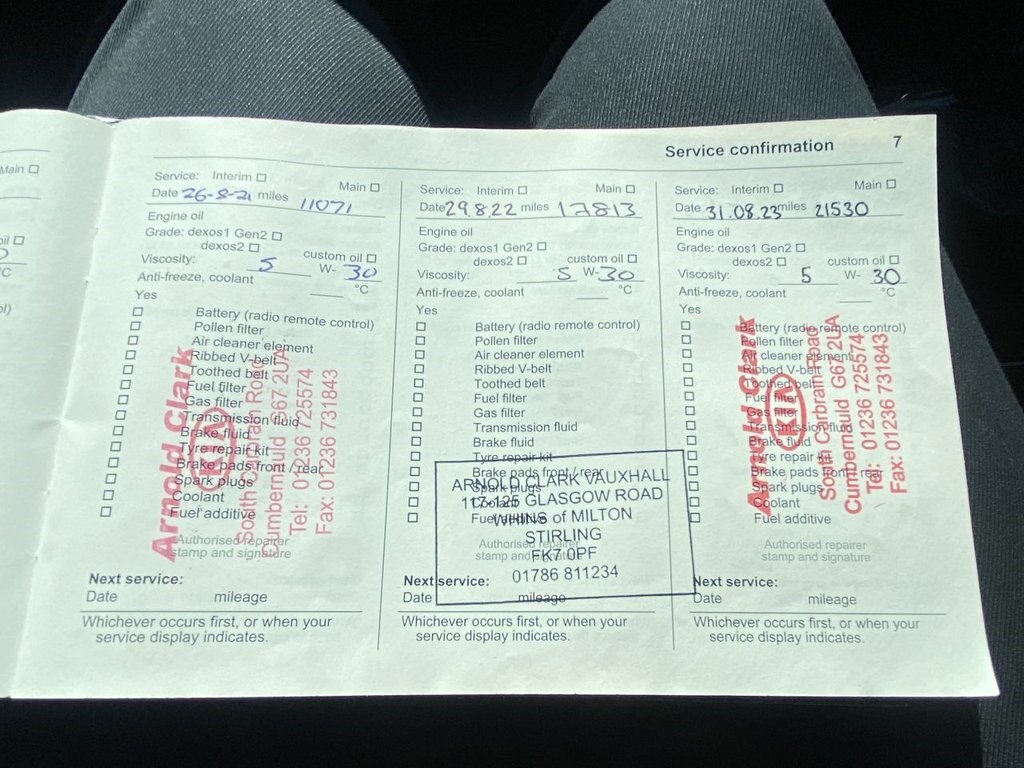 Service confirmation 7
Main ☐
Service: Interim ☐ Main ☐
Date 26-8-21 miles 11071
Engine oil
Grade: dexos1 Gen2 ☐
dexos2 ☐ custom oil ☐
Viscosity: 5 W- 30
Anti-freeze, coolant ____ °C
Yes
☐ Battery (radio remote control)
☐ Pollen filter
☐ Air cleaner element
☐ Ribbed V-belt
☐ Toothed belt
☐ Fuel filter
☐ Gas filter
☐ Transmission fluid
☐ Brake fluid
☐ Tyre repair kit
☐ Brake pads front / rear
☐ Spark plugs
☐ Coolant
☐ Fuel additive
Authorised repairer
stamp and signature
Arnold Clark
KIA
South Carbrain Road
Cumbernauld G67 2UA
Tel: 01236 725574
Fax: 01236 731843
Next service:
Date mileage
Whichever occurs first, or when your
service display indicates.
Service: Interim ☐ Main ☐
Date 29.8.22 miles 17813
Engine oil
Grade: dexos1 Gen2 ☐
dexos2 ☐ custom oil ☐
Viscosity: 5 W- 30
Anti-freeze, coolant ____ °C
Yes
☐ Battery (radio remote control)
☐ Pollen filter
☐ Air cleaner element
☐ Ribbed V-belt
☐ Toothed belt
☐ Fuel filter
☐ Gas filter
☐ Transmission fluid
☐ Brake fluid
☐ Tyre repair kit
☐ Brake pads front / rear
☐ Spark plugs
☐ Coolant
☐ Fuel additive
Authorised repairer
stamp and signature
ARNOLD CLARK VAUXHALL
117-125 GLASGOW ROAD
WHINS of MILTON
STIRLING
FK7 0PF
01786 811234
Next service:
Date mileage
Whichever occurs first, or when your
service display indicates.
Service: Interim ☐ Main ☐
Date 31.08.23 miles 21530
Engine oil
Grade: dexos1 Gen2 ☐
dexos2 ☐ custom oil ☐
Viscosity: 5 W- 30
Anti-freeze, coolant ____ °C
Yes
☐ Battery (radio remote control)
☐ Pollen filter
☐ Air cleaner element
☐ Ribbed V-belt
☐ Toothed belt
☐ Fuel filter
☐ Gas filter
☐ Transmission fluid
☐ Brake fluid
☐ Tyre repair kit
☐ Brake pads front / rear
☐ Spark plugs
☐ Coolant
☐ Fuel additive
Authorised repairer
stamp and signature
Arnold Clark
KIA
South Carbrain Road
Cumbernauld G67 2UA
Tel: 01236 725574
Fax: 01236 731843
Next service:
Date mileage
Whichever occurs first, or when your
service display indicates.